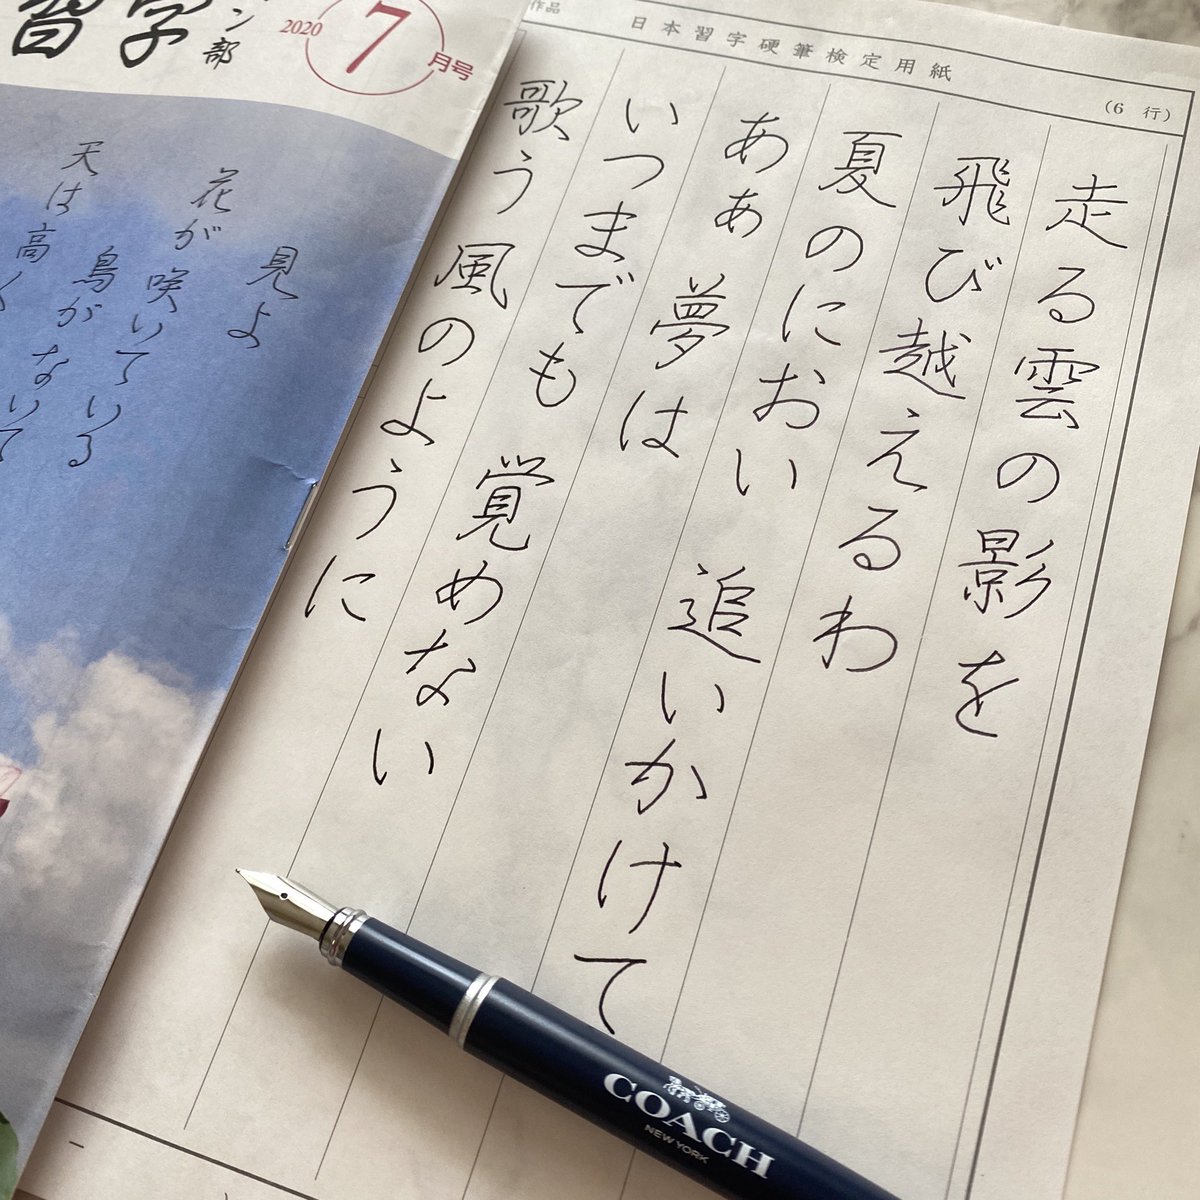 日本習字硬筆検定用紙
(6 行)
作品
走る雲の影を
飛び越えるわ
夏のにおい 追いかけて
あぁ 夢は
いつまでも 覚めない
歌う風のように
習字
ン部
2020
7
月号
見よ
花が咲いている
鳥がないて
天は高く
COACH
NEW YORK